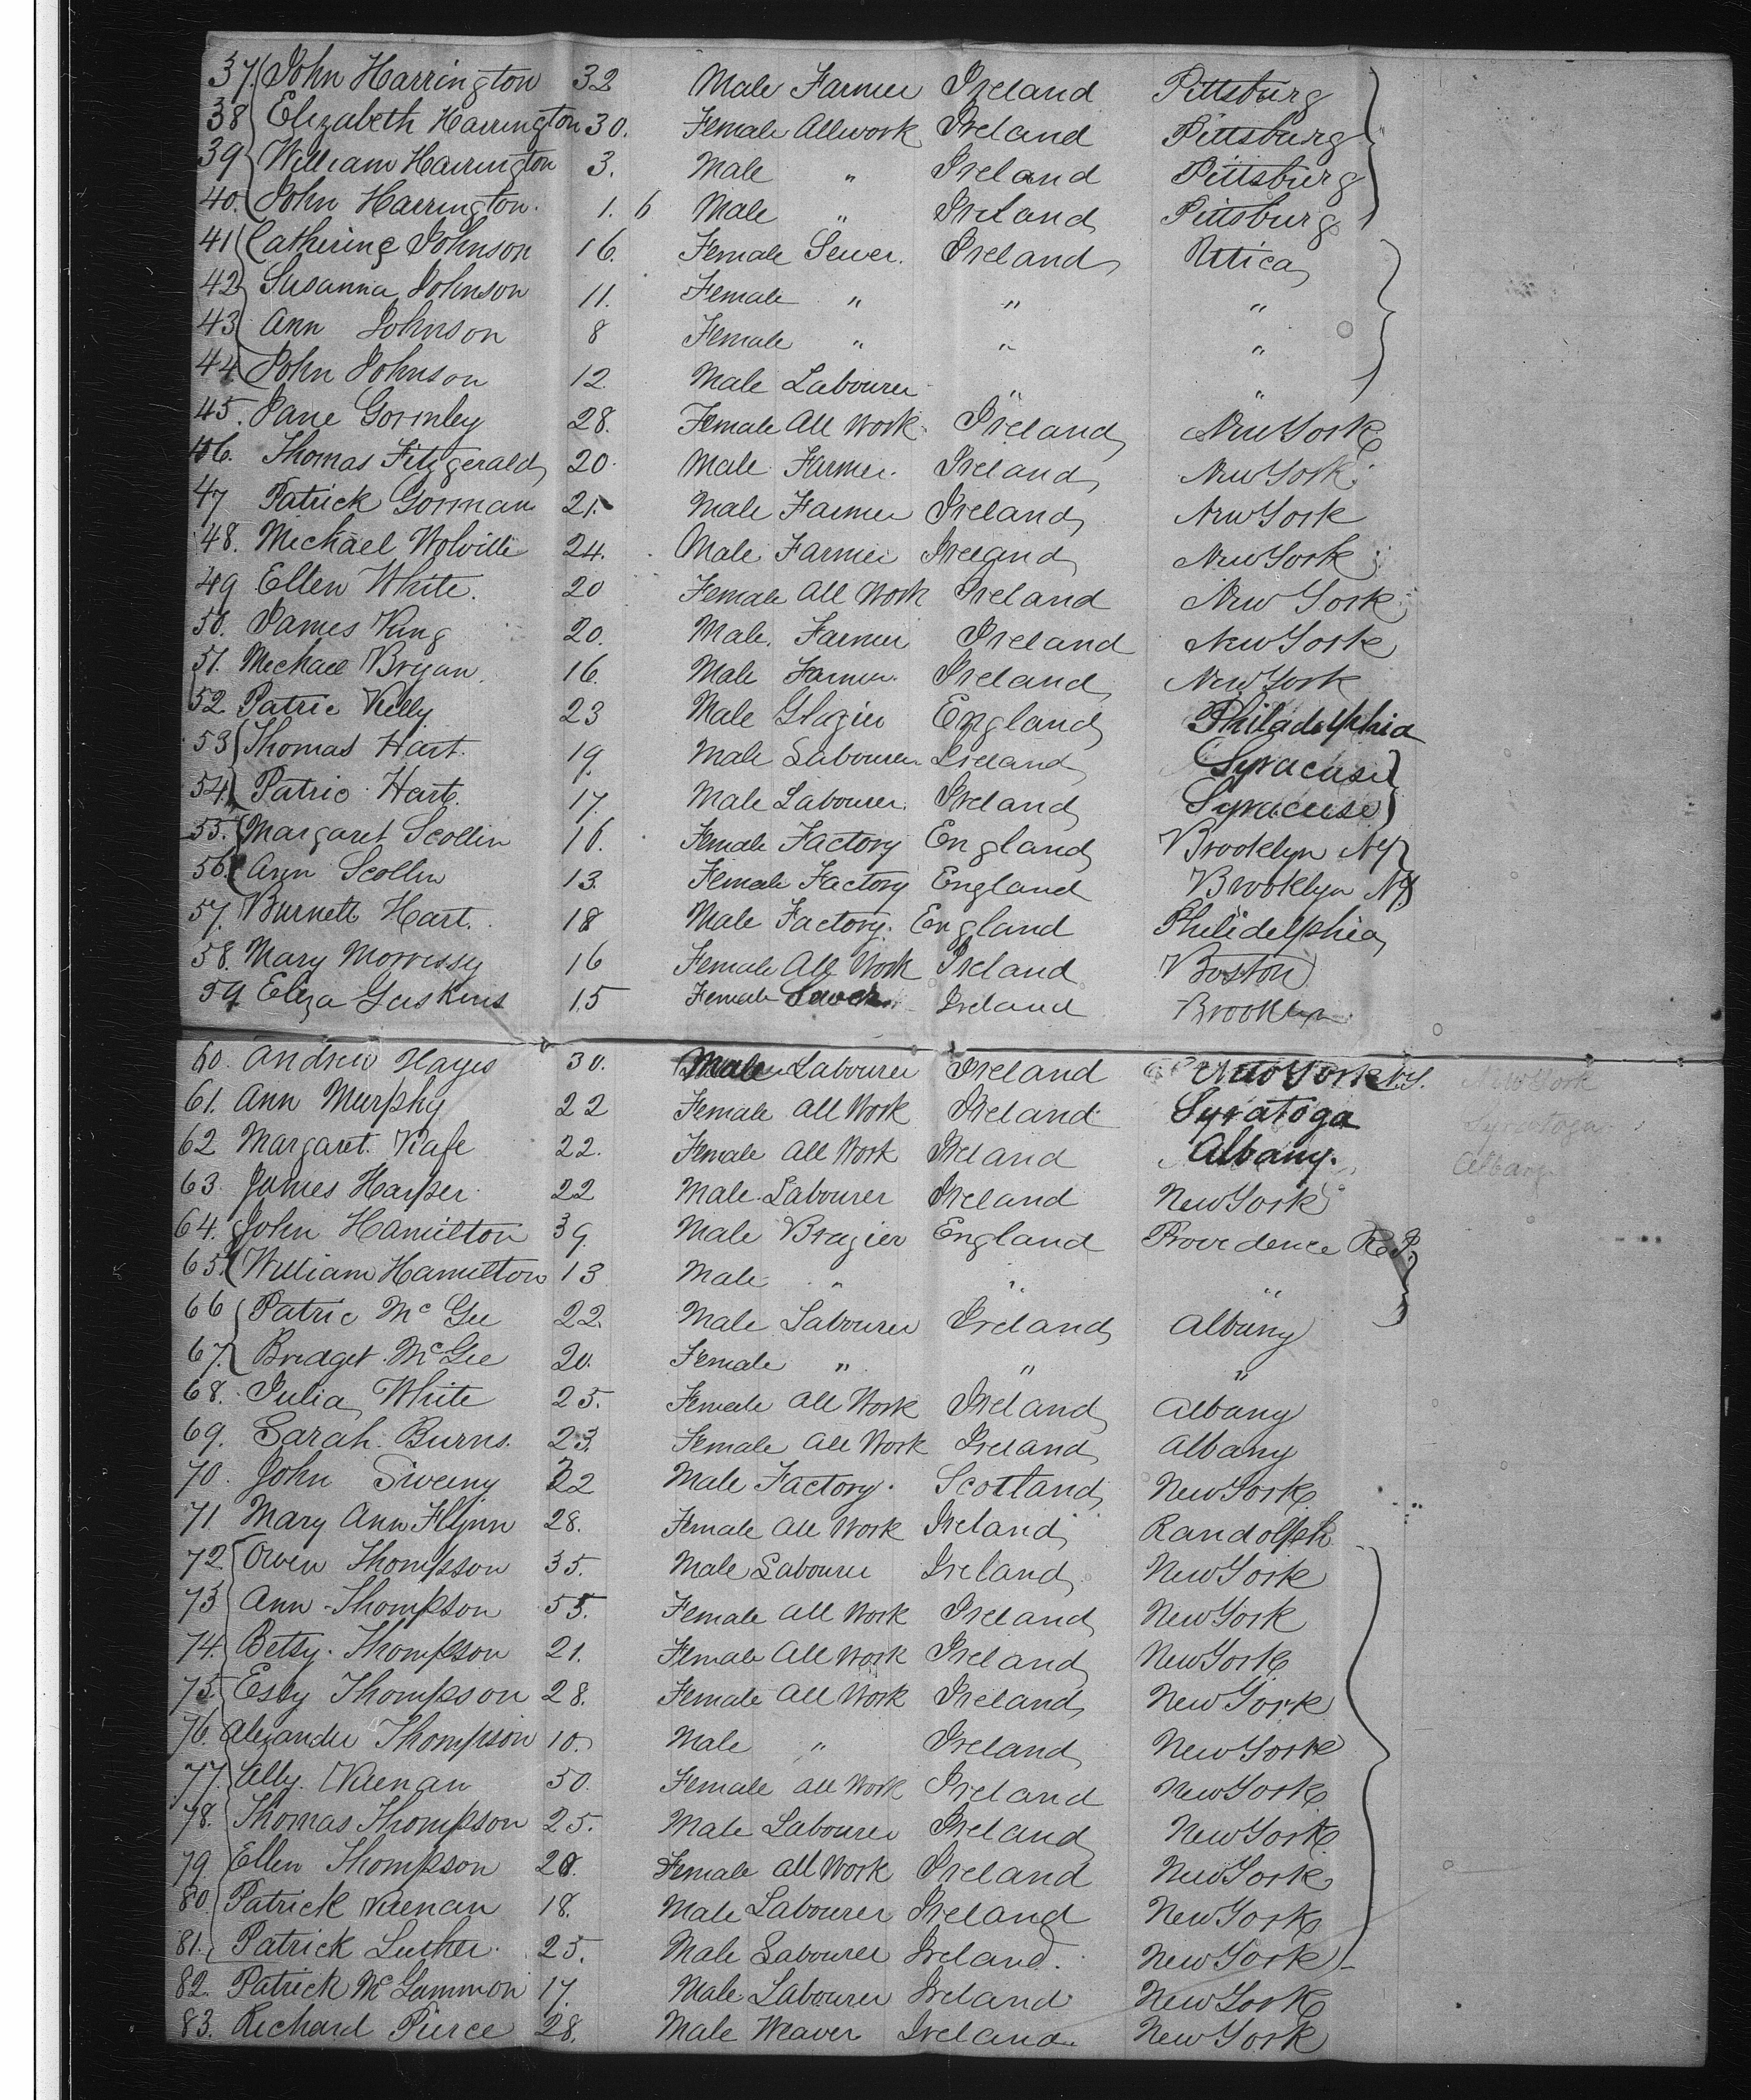 37. John Harrington 32 Male Farmer Ireland Pittsburg
38 Elizabeth Harrington 30. Female Allwork Ireland Pittsburg
39 William Harrington 3. Male " Ireland Pittsburg
40. John Harrington. 1. 6 Male " Ireland Pittsburg
41 Catherine Johnson 16. Female Sewer. Ireland Utica
42 Susanna Johnson 11. Female " " "
43 Ann Johnson 8 Female " " "
44 John Johnson 12. Male Labourer " "
45. Jane Gormley 28. Female All Work Ireland New York
46. Thomas Fitzgerald 20. Male Farmer. Ireland New York
47 Patrick Gorman 21. Male Farmer Ireland New York
48. Michael 24. Male Farmer Ireland New York
49 Ellen White. 20 Female All Work Ireland New York
50. James King 20. Male. Farmer Ireland New York
51. Michael Bryan. 16. Male Farmer. Ireland New York
52. Patric Kelly 23 Male Glazier England Philadelphia
53 Thomas Hart. 19. Male Labourer Ireland Syracuse
54 Patric Hart. 17. Male Labourer. Ireland Syracuse
55. Margaret Scollin 16. Female Factory England Brooklyn NY
56. Ann Scollin 13. Female Factory England Brooklyn NY
57. Burnett Hart. 18 Male Factory. England Philidelphia
58. Mary Morrissy 16 Female All Work Ireland Boston
59 Eliza Gaskins 15 Female Ireland Brooklyn
60. Andrew Hayes 30. Male Labourer Ireland New York N.Y. New York
61. Ann Murphy 22 Female All Work Ireland Syratoga Syratoga
62 Margaret Kafe 22. Female All Work Ireland Albany. Albany
63. James Harper 22 Male Labourer Ireland New York
64. John Hamilton 39. Male Brazier England Providence R I.
65. William Hamilton 13 Male " " "
66 Patric Mc Gee 22. Male Labourer Ireland Albany
67. Bridget McGee 20. Female " " "
68. Julia White 25. Female All Work Ireland Albany
69. Sarah Burns. 23. Female All Work Ireland Albany
70. John Sweeny 22 Male Factory. Scotland New York
71. Mary Ann Flynn 28. Female All Work Ireland Randolph
72. Owen Thompson 35. Male Labourer Ireland New York
73 Ann Thompson 55. Female All Work Ireland New York
74. Betsy Thompson 21. Female All Work Ireland New York
75. Essy Thompson 28. Female All Work Ireland New York
76. Alexander Thompson 10. Male " Ireland New York
77. Ally Keenan 50. Female All Work Ireland New York
78. Thomas Thompson 25. Male Labourer Ireland New York
79 Ellen Thompson Female All Work Ireland New York
80. Patrick Keenan 18. Male Labourer Ireland New York
81. Patrick Luther. 25. Male Labourer Ireland. New York
82. Patrick Mc Gammon 17. Male Labourer Ireland New York
83. Richard Pierce 28. Male Weaver Ireland New York